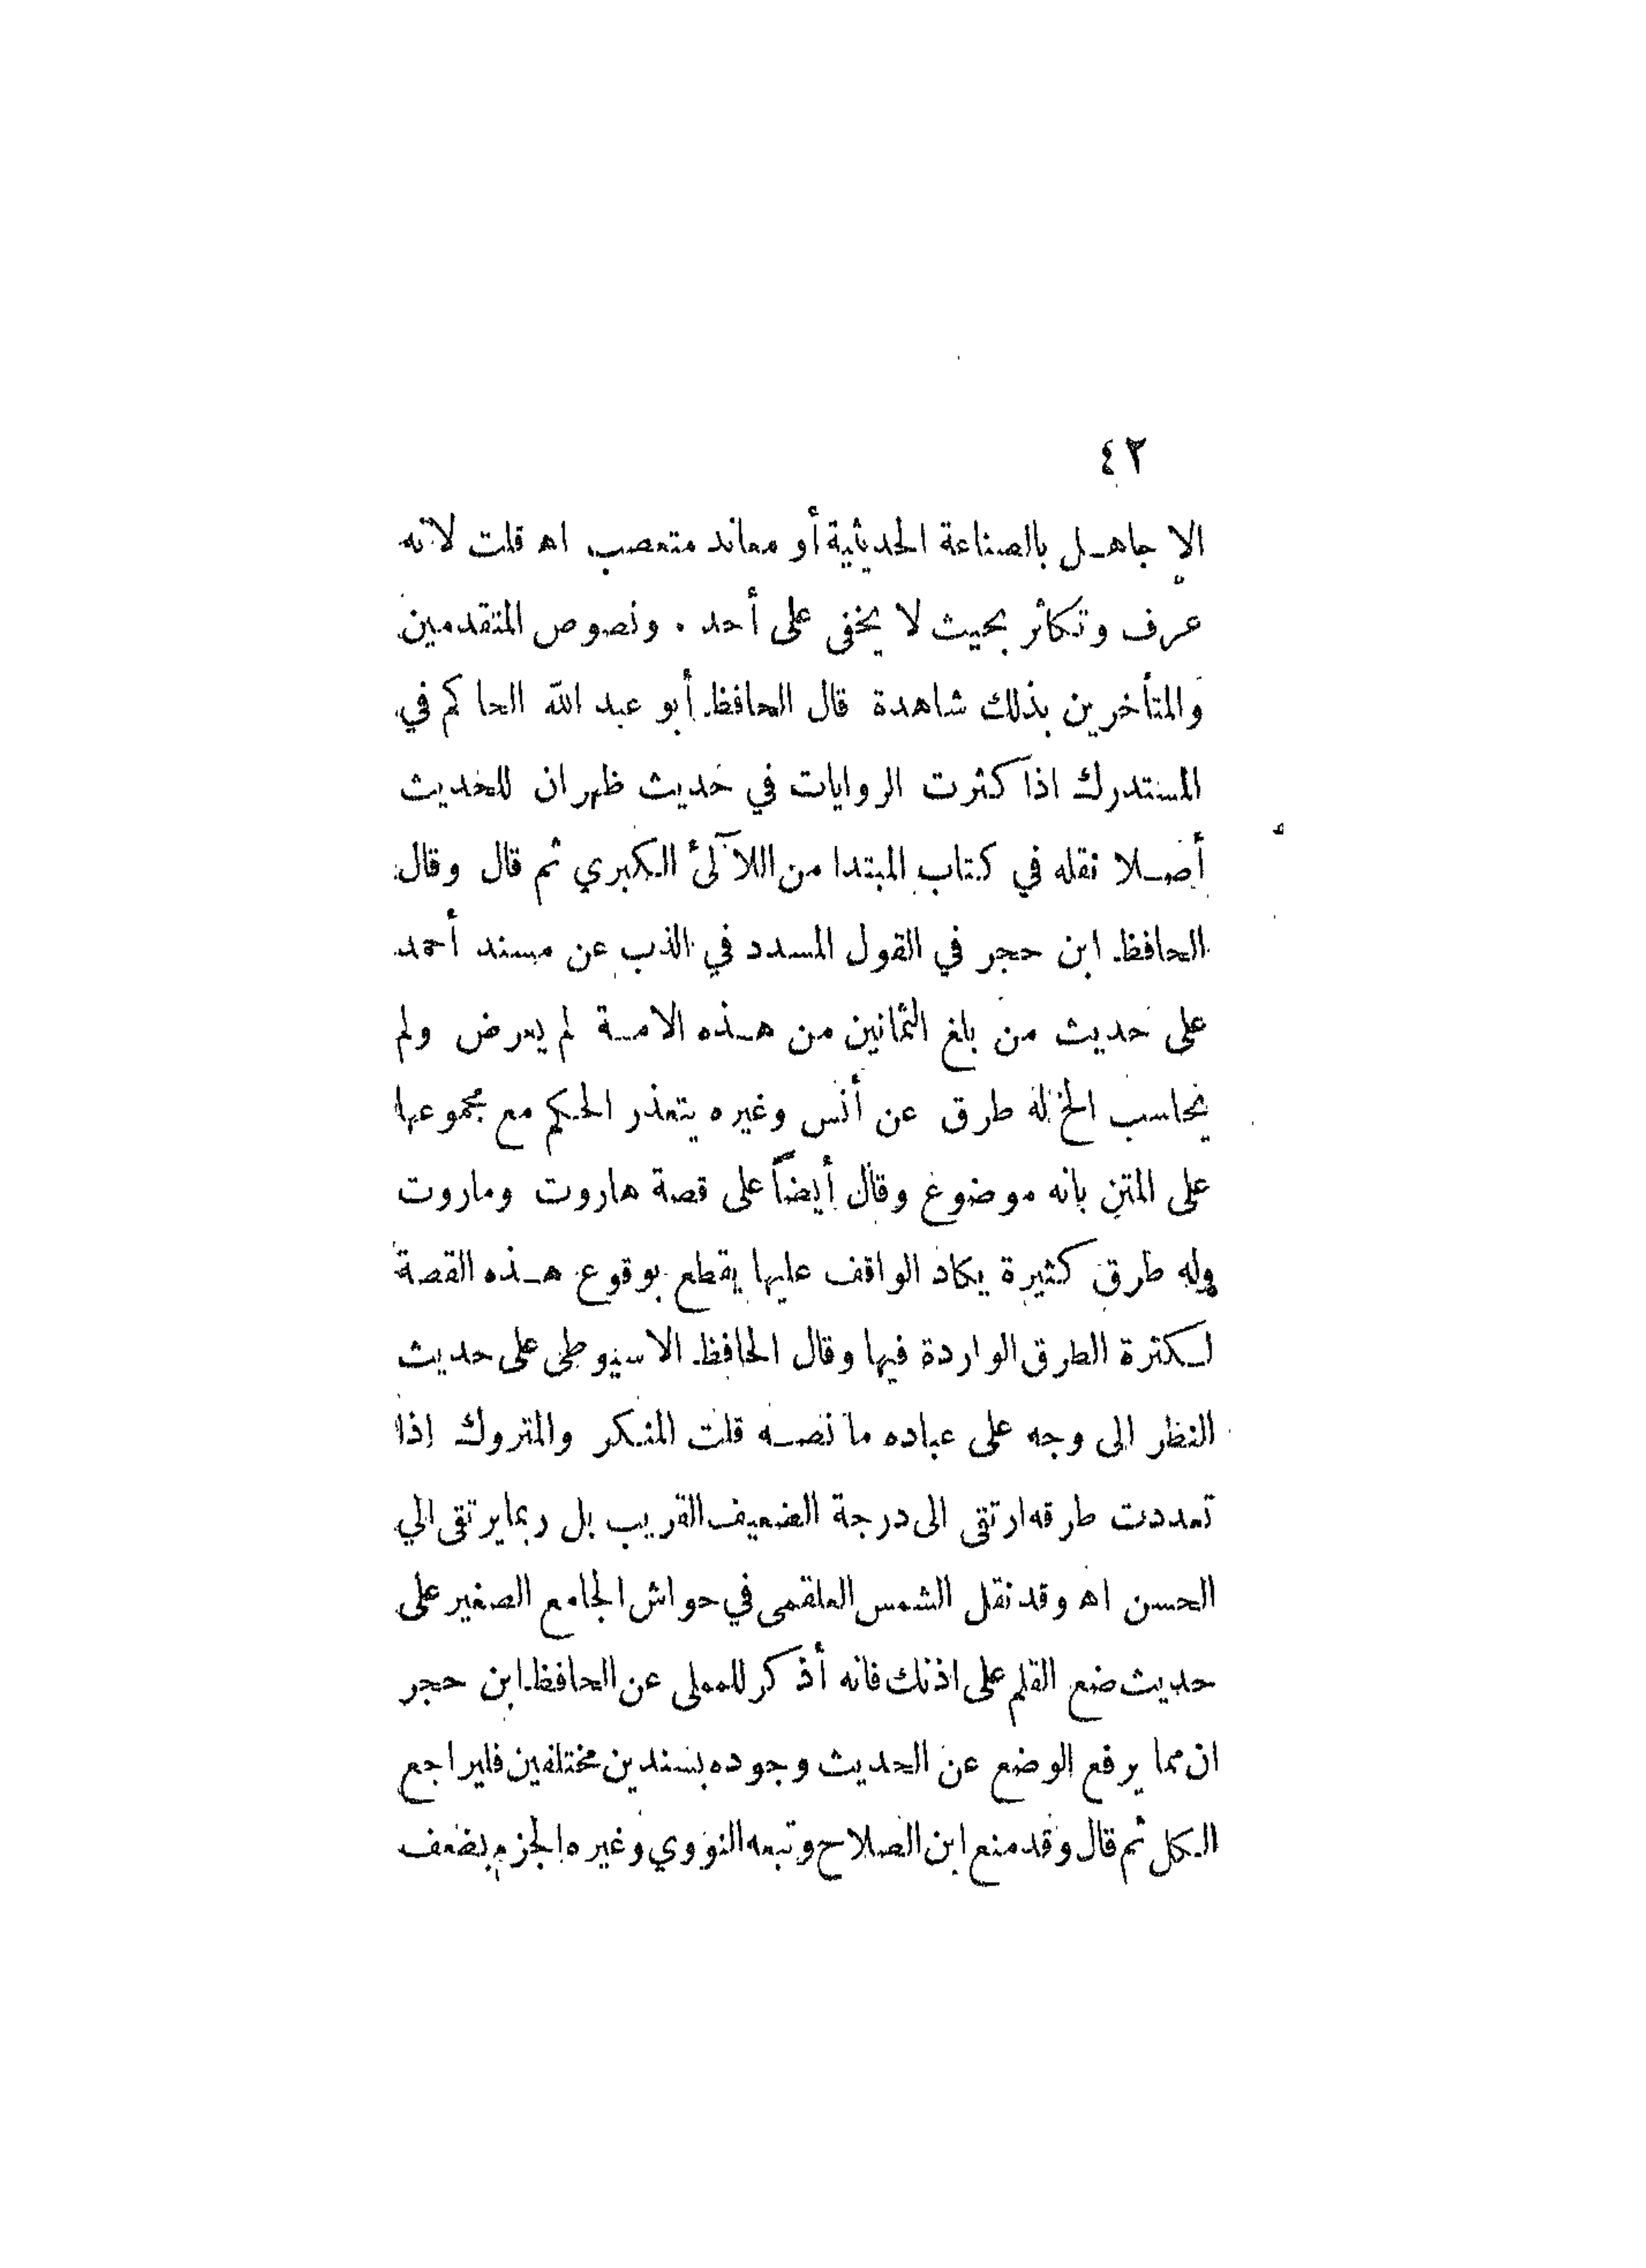 ٤٢
الا جاهـل بالصناعة الحديثية أو معاند متعصب اه قلت لانه
عرف وتكاثر بحيث لا يخفى على أحد . ونصوص المتقدمين
والمتأخرين بذلك شاهدة قال الحافظ أبو عبد الله الحاكم في
المستدرك اذا كثرت الروايات في حديث ظهر ان للحديث
أصـلا نقله في كتاب المبتدا من اللآلئ الكبري ثم قال وقال
الحافظ ابن حجر في القول المسدد في الذب عن مسند أحمد
على حديث من بلغ الثمانين من هـذه الامـة لم يعرض ولم
يحاسب الخ له طرق عن أنس وغيره يتعذر الحكم مع مجموعها
على المتن بانه موضوع وقال أيضاً على قصة هاروت وماروت
وله طرق كثيرة يكاد الواقف عليها يقطع بوقوع هـذه القصة
لـكثرة الطرق الواردة فيها وقال الحافظ الاسيوطى على حديث
النظر الى وجه على عباده ما نصـه قلت المنكر والمتروك اذا
تعددت طرقه ارتقى الى درجة الضعيف القريب بل ربما يرتقى الي
الحسن اه وقد نقل الشمس العلقمى في حواش الجامع الصغير على
حديث ضع القلم على اذنك فانه أذكر للمملى عن الحافظ ابن حجر
ان مما يرفع الوضع عن الحديث وجوده بسندين مختلفين فليراجع
الكل ثم قال وقد منع ابن الصلاح وتبعه النووي وغيره الجزم بضعف